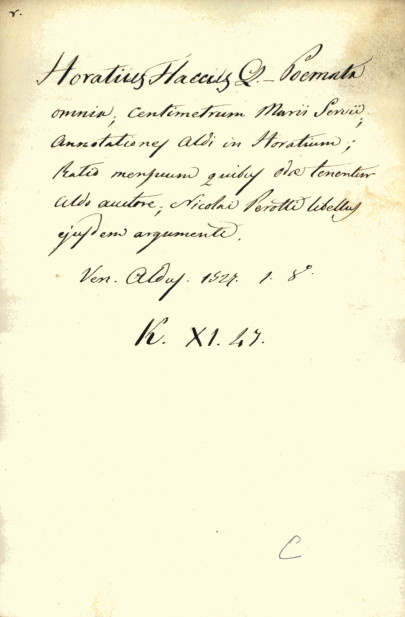 r.
Horatius Flaccus Q. – Poemata
omnia; Centimetrum Marii Servii;
Annotationes Aldi in Horatium;
Ratio mensuum quibus odae tenentur
Aldo auctore; Nicolai Perotti libellus
ejusdem argumenti.
Ven. Aldus. 1527. 1. 8°
K. XI. 47.
C